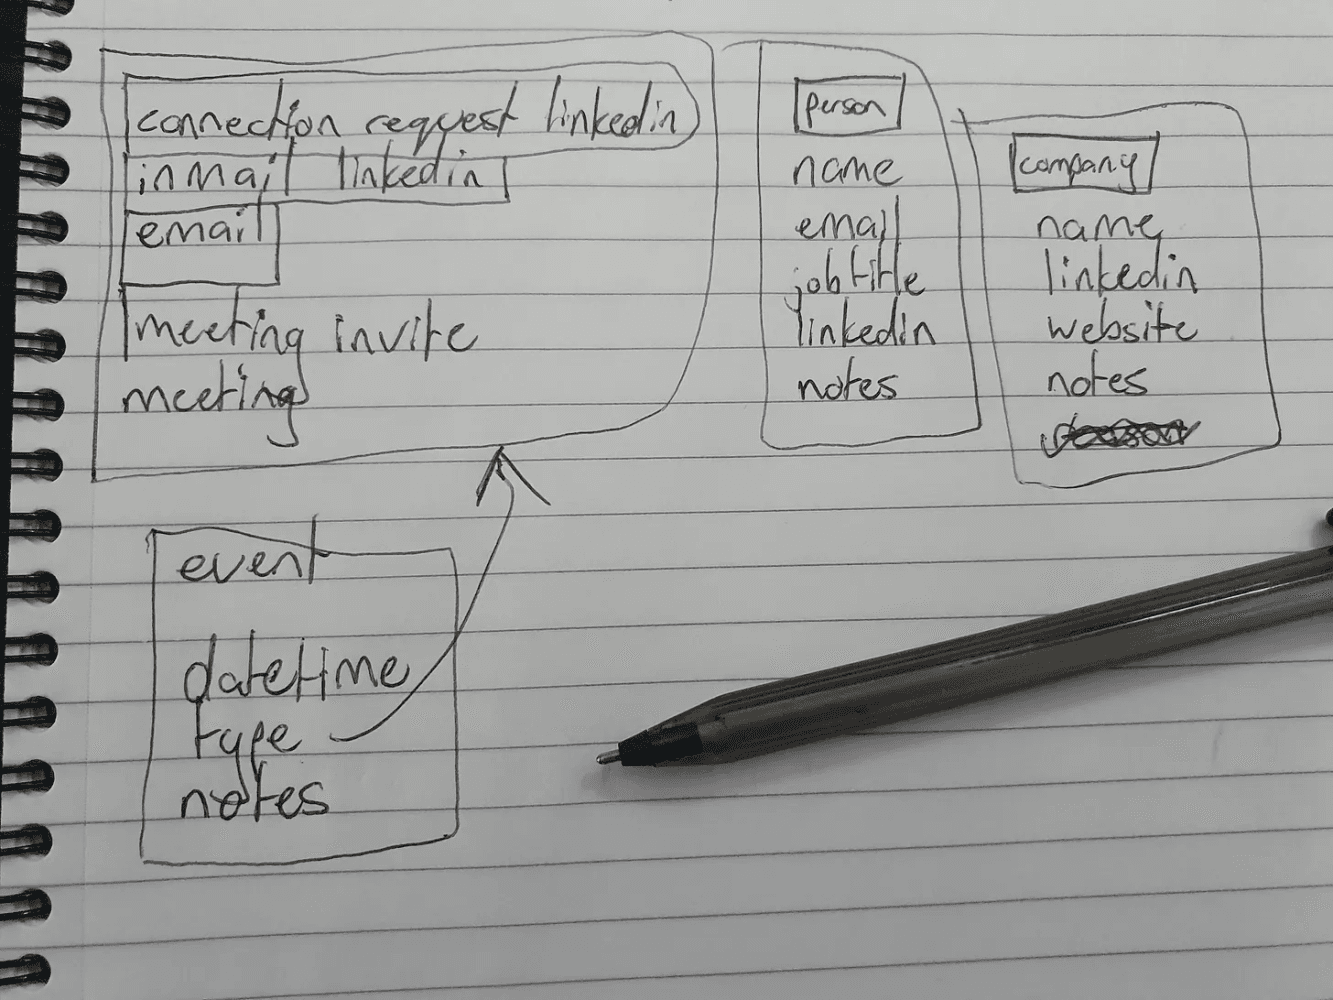 connection request linkedin
inmail linkedin
email
meeting invite
meeting
person
name
email
job title
linkedin
notes
company
name
linkedin
website
notes
event
datetime
type
notes